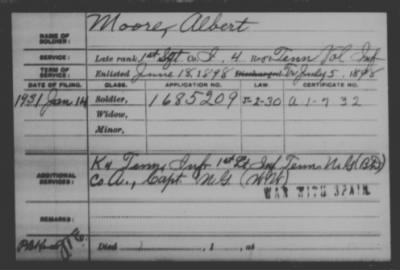 NAME OF SOLDIER: Moore, Albert
SERVICE: Late rank, 1st Sgt. Co. I, 4 Reg't Tenn Vol Inf
TERM OF SERVICE: Enlisted June 18, 1898 Discharged July 5, 1898
DATE OF FILING. CLASS. APPLICATION NO. LAW. CERTIFICATE NO.
1931 Jan 14 Soldier, 1685209 5-2-30 A 1-7 32
Widow,
Minor,
ADDITIONAL SERVICES: K 4 Tenn Inf 1st Lt Inf Tenn N.G.
Co A., Capt N.G. (WW)
WAR WITH SPAIN
REMARKS:
Died , 1 , at